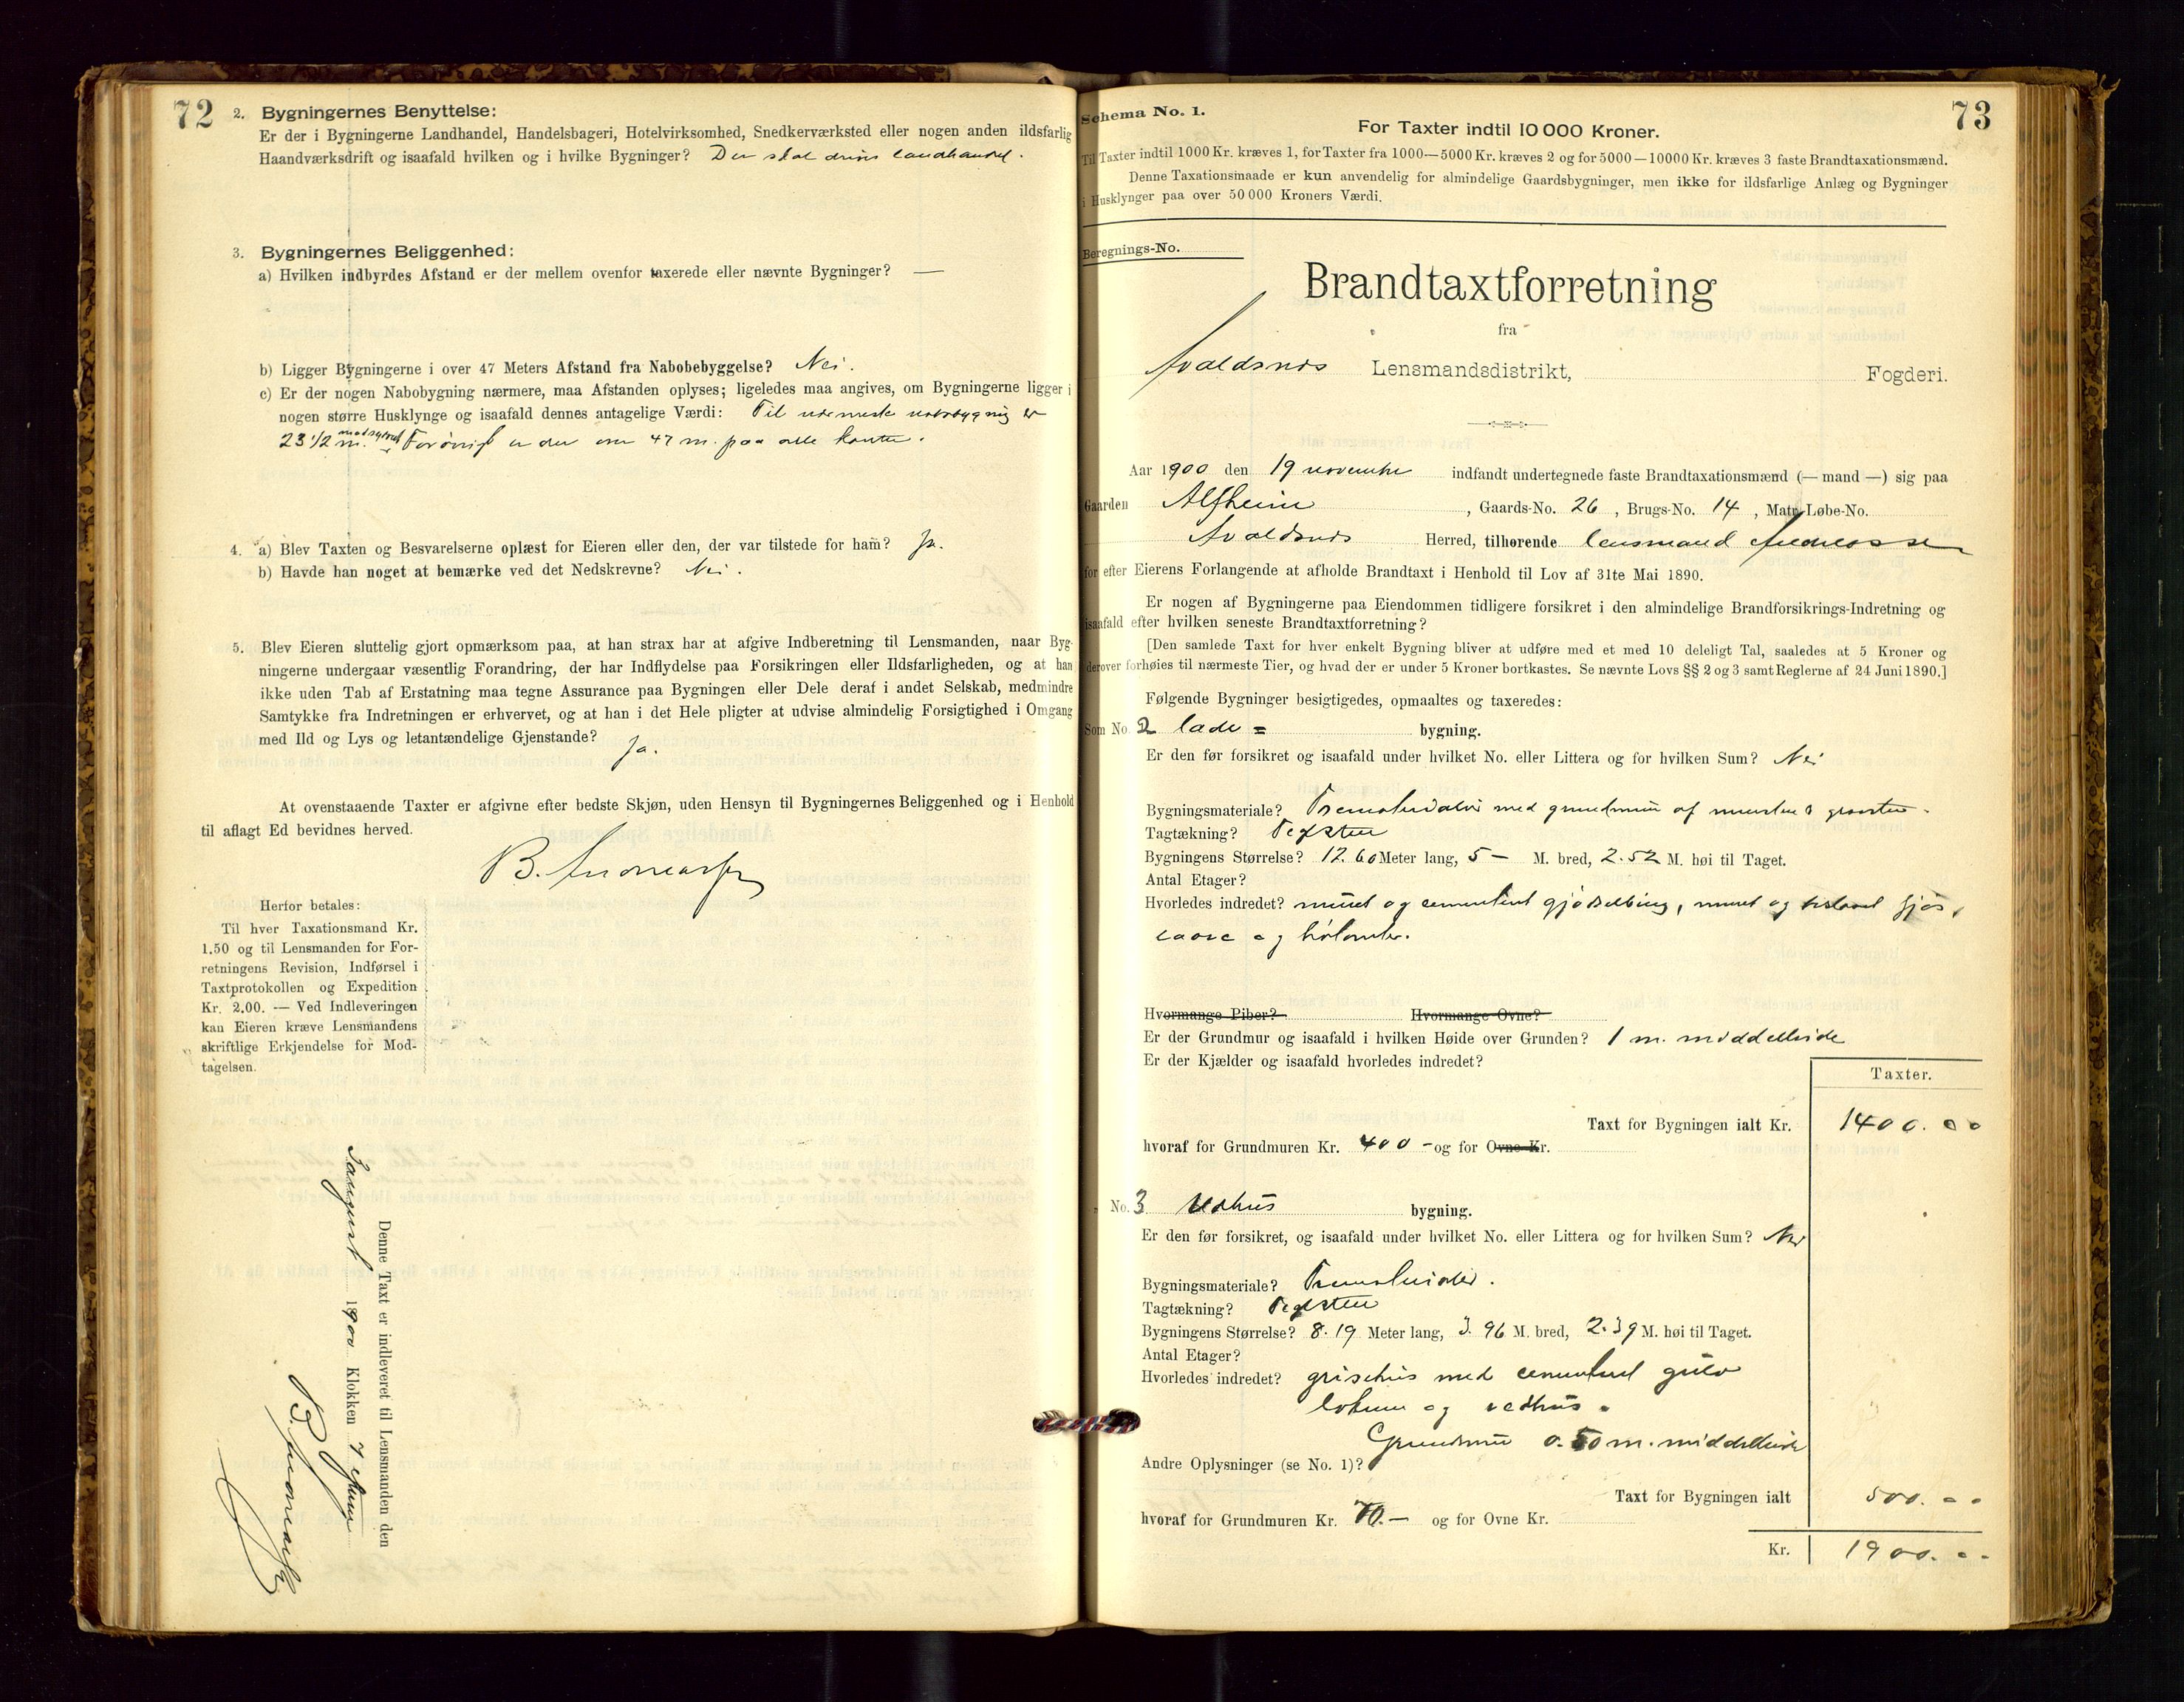 72
2. Bygningernes Benyttelse:
Er der i Bygningerne Landhandel, Handelsbageri, Hotelvirksomhed, Snedkerværksted eller nogen anden ildsfarlig
Haandværksdrift og isaafald hvilken og i hvilke Bygninger? Der skal drives landhandel.
3. Bygningernes Beliggenhed:
a) Hvilken indbyrdes Afstand er der mellem ovenfor taxerede eller nævnte Bygninger? —
b) Ligger Bygningerne i over 47 Meters Afstand fra Nabobebyggelse? Nei.
c) Er der nogen Nabobygning nærmere, maa Afstanden oplyses; ligeledes maa angives, om Bygningerne ligger i
nogen større Husklynge og isaafald dennes antagelige Værdi: Til nærmeste nabobygnig er
23 1/2 m. mod sydvest Forøvrigt er der om 47 m. paa alle kanter.
4. a) Blev Taxten og Besvarelserne oplæst for Eieren eller den, der var tilstede for ham? Ja.
b) Havde han noget at bemærke ved det Nedskrevne? Nei.
5. Blev Eieren sluttelig gjort opmærksom paa, at han strax har at afgive Indberetning til Lensmanden, naar Byg-
ningerne undergaar væsentlig Forandring, der har Indflydelse paa Forsikringen eller Ildsfarligheden, og at han
ikke uden Tab af Erstatning maa tegne Assurance paa Bygningen eller Dele deraf i andet Selskab, medmindre
Samtykke fra Indretningen er erhvervet, og at han i det Hele pligter at udvise almindelig Forsigtighed i Omgang
med Ild og Lys og letantændelige Gjenstande? Ja.
At ovenstaaende Taxter er afgivne efter bedste Skjøn, uden Hensyn til Bygningernes Beliggenhed og i Henhold
til aflagt Ed bevidnes herved.
B. Andreassen
Herfor betales:
Til hver Taxationsmand Kr.
1.50 og til Lensmanden for For-
retningens Revision, Indførsel i
Taxtprotokollen og Expedition
Kr. 2.00. — Ved Indleveringen
kan Eieren kræve Lensmandens
skriftlige Erkjendelse for Mod-
tagelsen.
Denne Taxt er indleveret til Lensmanden den
august 1900 Klokken 7 efterm
B. Andreassen
73
Schema No. 1.
For Taxter indtil 10 000 Kroner.
Til Taxter indtil 1000 Kr. kræves 1, for Taxter fra 1000—5000 Kr. kræves 2 og for 5000—10000 Kr. kræves 3 faste Brandtaxationsmænd.
Denne Taxationsmaade er kun anvendelig for almindelige Gaardsbygninger, men ikke for ildsfarlige Anlæg og Bygninger
i Husklynger paa over 50 000 Kroners Værdi.
Beregnings-No.
Brandtaxtforretning
fra
Avaldsnes Lensmandsdistrikt, Fogderi.
Aar 1900 den 19 november indfandt undertegnede faste Brandtaxationsmænd (— mand —) sig paa
Gaarden Alfheim, Gaards-No. 26, Brugs-No. 14, Matr.-Løbe-No.
Avaldsnes Herred, tilhørende lensmand Andreassen
for efter Eierens Forlangende at afholde Brandtaxt i Henhold til Lov af 31te Mai 1890.
Er nogen af Bygningerne paa Eiendommen tidligere forsikret i den almindelige Brandforsikrings-Indretning og
isaafald efter hvilken seneste Brandtaxtforretning?
[Den samlede Taxt for hver enkelt Bygning bliver at udføre med et med 10 deleligt Tal, saaledes at 5 Kroner og
derover forhøies til nærmeste Tier, og hvad der er under 5 Kroner bortkastes. Se nævnte Lovs §§ 2 og 3 samt Reglerne af 24 Juni 1890.]
Følgende Bygninger besigtigedes, opmaaltes og taxeredes:
Som No. 2 lade = bygning.
Er den før forsikret og isaafald under hvilket No. eller Littera og for hvilken Sum? Nei
Bygningsmateriale? med grundmur af
Tagtækning? Teglsten
Bygningens Størrelse? 12.60 Meter lang, 5 — M. bred, 2.52 M. høi til Taget.
Antal Etager?
Hvorledes indredet? muret og cementeret gjødselbing, muret og fjøs,
laave og hølomter.
Hvormange Piber? Hvormange Ovne?
Er der Grundmur og isaafald i hvilken Høide over Grunden? 1 m. middelhøide
Er der Kjælder og isaafald hvorledes indredet?
Taxter.
Taxt for Bygningen ialt Kr. 1400.00
hvoraf for Grundmuren Kr. 400 — og for Ovne Kr.
" No. 3 Udhus bygning.
Er den før forsikret, og isaafald under hvilket No. eller Littera og for hvilken Sum? Nei
Bygningsmateriale?
Tagtækning? Teglsten
Bygningens Størrelse? 8.19 Meter lang, 3.96 M. bred, 2.39 M. høi til Taget.
Antal Etager?
Hvorledes indredet? grisehus med cementeret gulv
lokum og vedhus.
Grundmur 0.50 m. middelhøide
Andre Oplysninger (se No. 1)?
Taxt for Bygningen ialt 500.00
hvoraf for Grundmuren Kr. 70.— og for Ovne Kr.
Kr. 1900.00